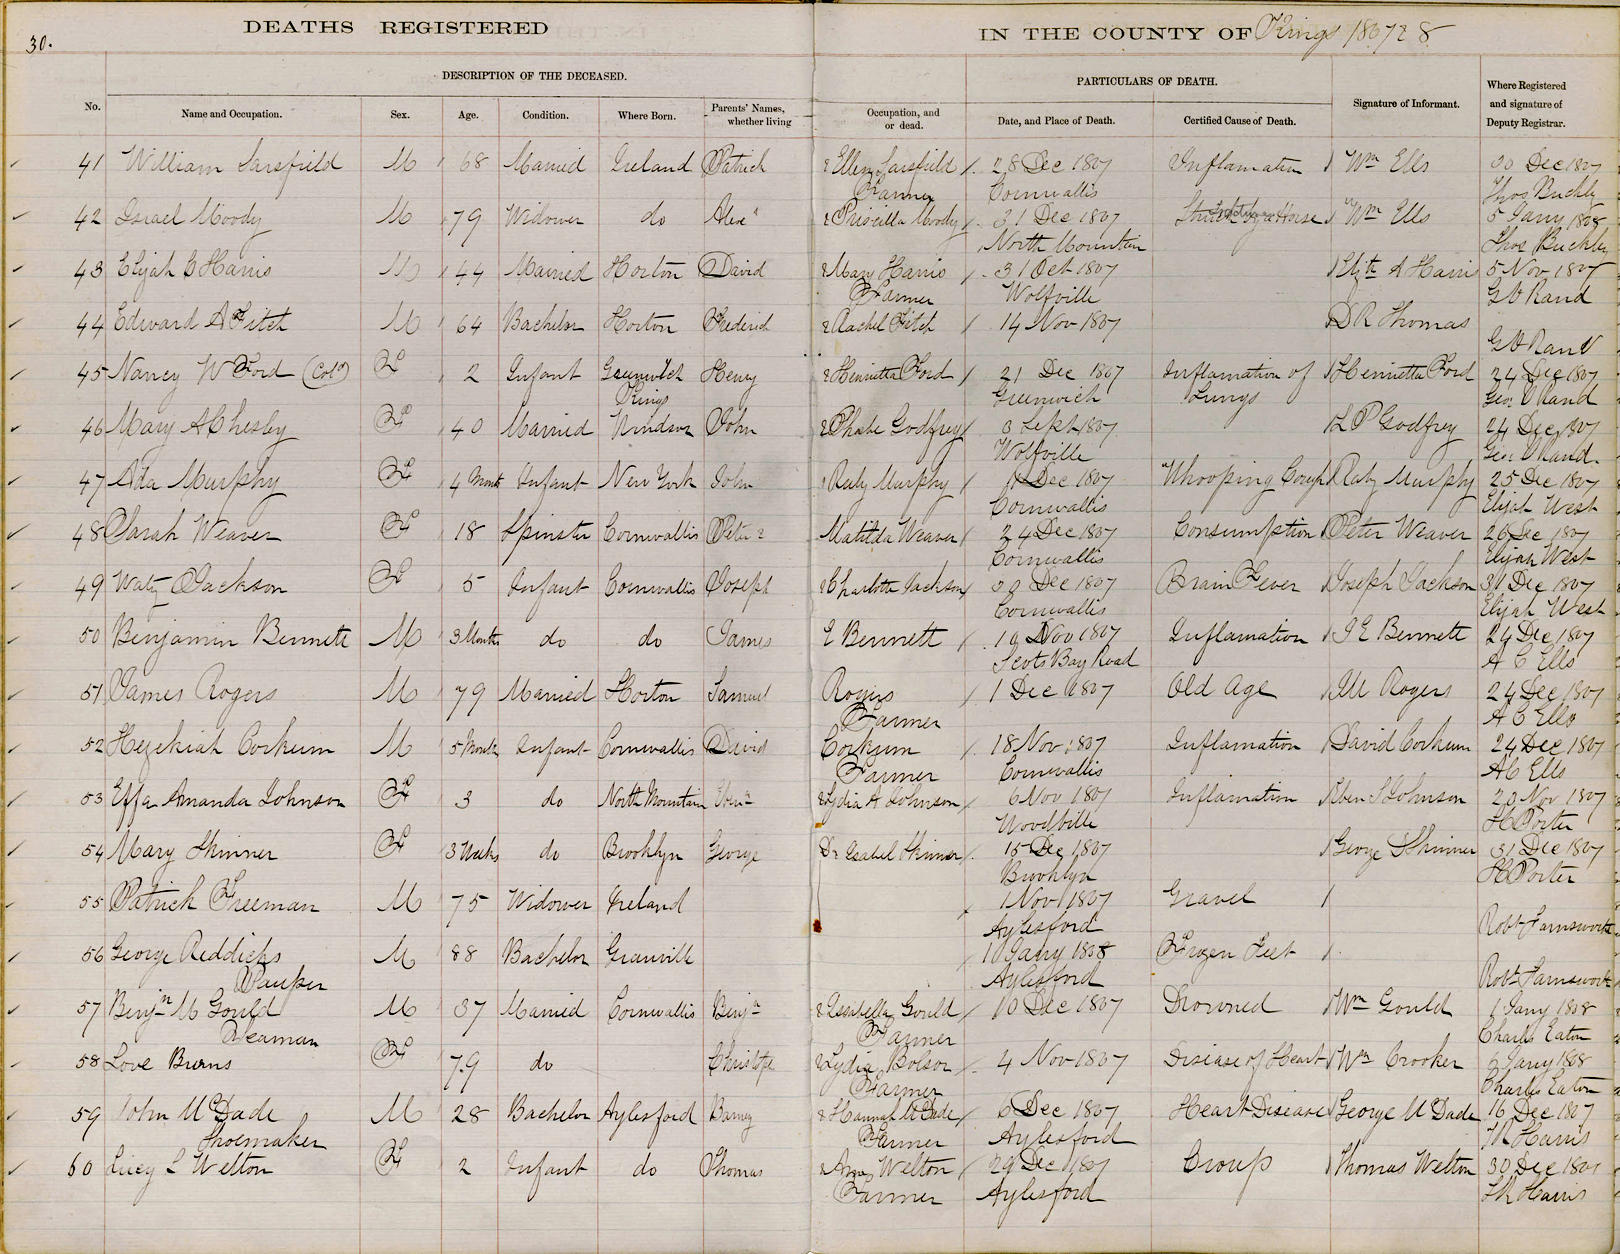 30.
DEATHS REGISTERED IN THE COUNTY OF Kings 1867 & 8
DESCRIPTION OF THE DECEASED. PARTICULARS OF DEATH.
No. Name and Occupation. Sex. Age. Condition. Where Born. Parents' Names, whether living Occupation, and or dead. Date, and Place of Death. Certified Cause of Death. Signature of Informant. Where Registered and signature of Deputy Registrar.
41 William Sarsfield M 68 Married Ireland Patrick & Ellen Sarsfield 28 Dec 1867 Inflamation Wm Ells 30 Dec 1867
Farmer Cornwallis Thos Buckly
42 Israel Moody M 79 Widower do Alexr & Priscilla Moody 31 Dec 1867 Wm Ells 5 Jany 1868
North Mountain Thos Buckly
43 Elijah B Harris M 44 Married Horton David & Mary Harris 31 Oct 1867 Elizth A Harris 5 Nov 1867
Farmer Wolfville G V Rand
44 Edward A Fitch M 64 Bachelor Horton Frederick & Rachel Fitch 14 Nov 1867 D R Thomas
G V Rand
45 Nancy W Ford (Cold) F 2 Infant Greenwich Henry & Henrietta Ford 21 Dec 1867 Inflamation of Henrietta Ford 24 Dec 1867
Kings Greenwich Lungs Geo V Rand
46 Mary A Chesley F 40 Married Windsor John & Phabe Godfrey 3 Sept 1867 L P Godfrey 24 Dec 1867
Wolfville Geo V Rand
47 Ada Murphy F 4 Month Infant New York John & Katy Murphy Dec 1867 Whooping Cough Katy Murphy 25 Dec 1867
Cornwallis Elijah West
48 Sarah Weaver F 18 Spinster Cornwallis Peter & Matilda Weaver 24 Dec 1867 Consumption Peter Weaver 26 Dec 1867
Cornwallis Elijah West
49 Waty Jackson F 5 Infant Cornwallis Joseph & Charlotte Jackson 30 Dec 1867 Brain Fever Joseph Jackson 31 Dec 1867
Cornwallis Elijah West
50 Benjamin Bennett M 3 Months do do James E Bennett 19 Nov 1867 Inflamation J E Bennett 24 Dec 1867
Scots Bay Road A C Ells
51 James Rogers M 79 Married Horton Samuel Rogers 1 Dec 1867 Old Age J M Rogers 24 Dec 1867
Farmer A C Ells
52 Hezekiah Corkum M 5 Month Infant Cornwallis David Corkum 18 Nov 1867 Inflamation David Corkum 24 Dec 1867
Farmer Cornwallis A C Ells
53 Effa Amanda Johnson F 3 do North Mountain & Lydia A Johnson 6 Nov 1867 Inflamation Eben S Johnson 20 Nov 1867
Woodville H Porter
54 Mary Skinner F 3 Weeks do Brooklyn George Do Isabel Skinner 15 Dec 1867 George Skinner 31 Dec 1867
Brooklyn H Porter
55 Patrick Freeman M 75 Widower Ireland 1 Nov 1867 Gravel
Aylesford Robt Farnsworth
56 George Reddicks M 88 Bachelor Granville 1 Jany 1868 Frozen Feet
Pauper Aylesford Robt Farnsworth
57 Benjn M Gould M 37 Married Cornwallis Benjn & Issibella Gould 10 Dec 1867 Drowned Wm Gould 1 Jany 1868
Seaman Farmer Charles Eaton
58 Love Burns F 79 do Christoph & Lydia Bolsor 4 Nov 1867 Disease of Heart Wm Crooker 6 Jany 1868
Farmer Charles Eaton
59 John McDade M 28 Bachelor Aylesford Barney & Hannah McDade 6 Dec 1867 Heart Disease George McDade 16 Dec 1867
Shoemaker Farmer Aylesford T R Harris
60 Lucy L Welton F 2 Infant do Thomas & Ann Welton 29 Dec 1867 Croup Thomas Welton 30 Dec 1867
Farmer Aylesford T R Harris